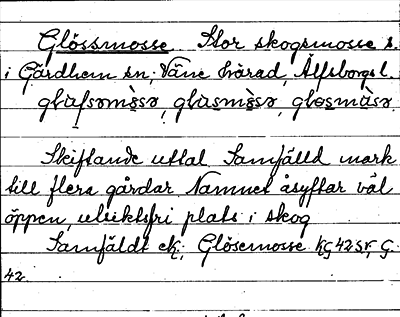 Glössmosse Stor skogsmosse s.
i Gärdhem sn; Väne härad, Älfsborgs l.
Skiftande uttal. Samfälld mark
till flera gårdar Namnet åsyftar väl
öppen, utsiktsfri plats i skog
Samfäldt ek; Glösemosse
42.